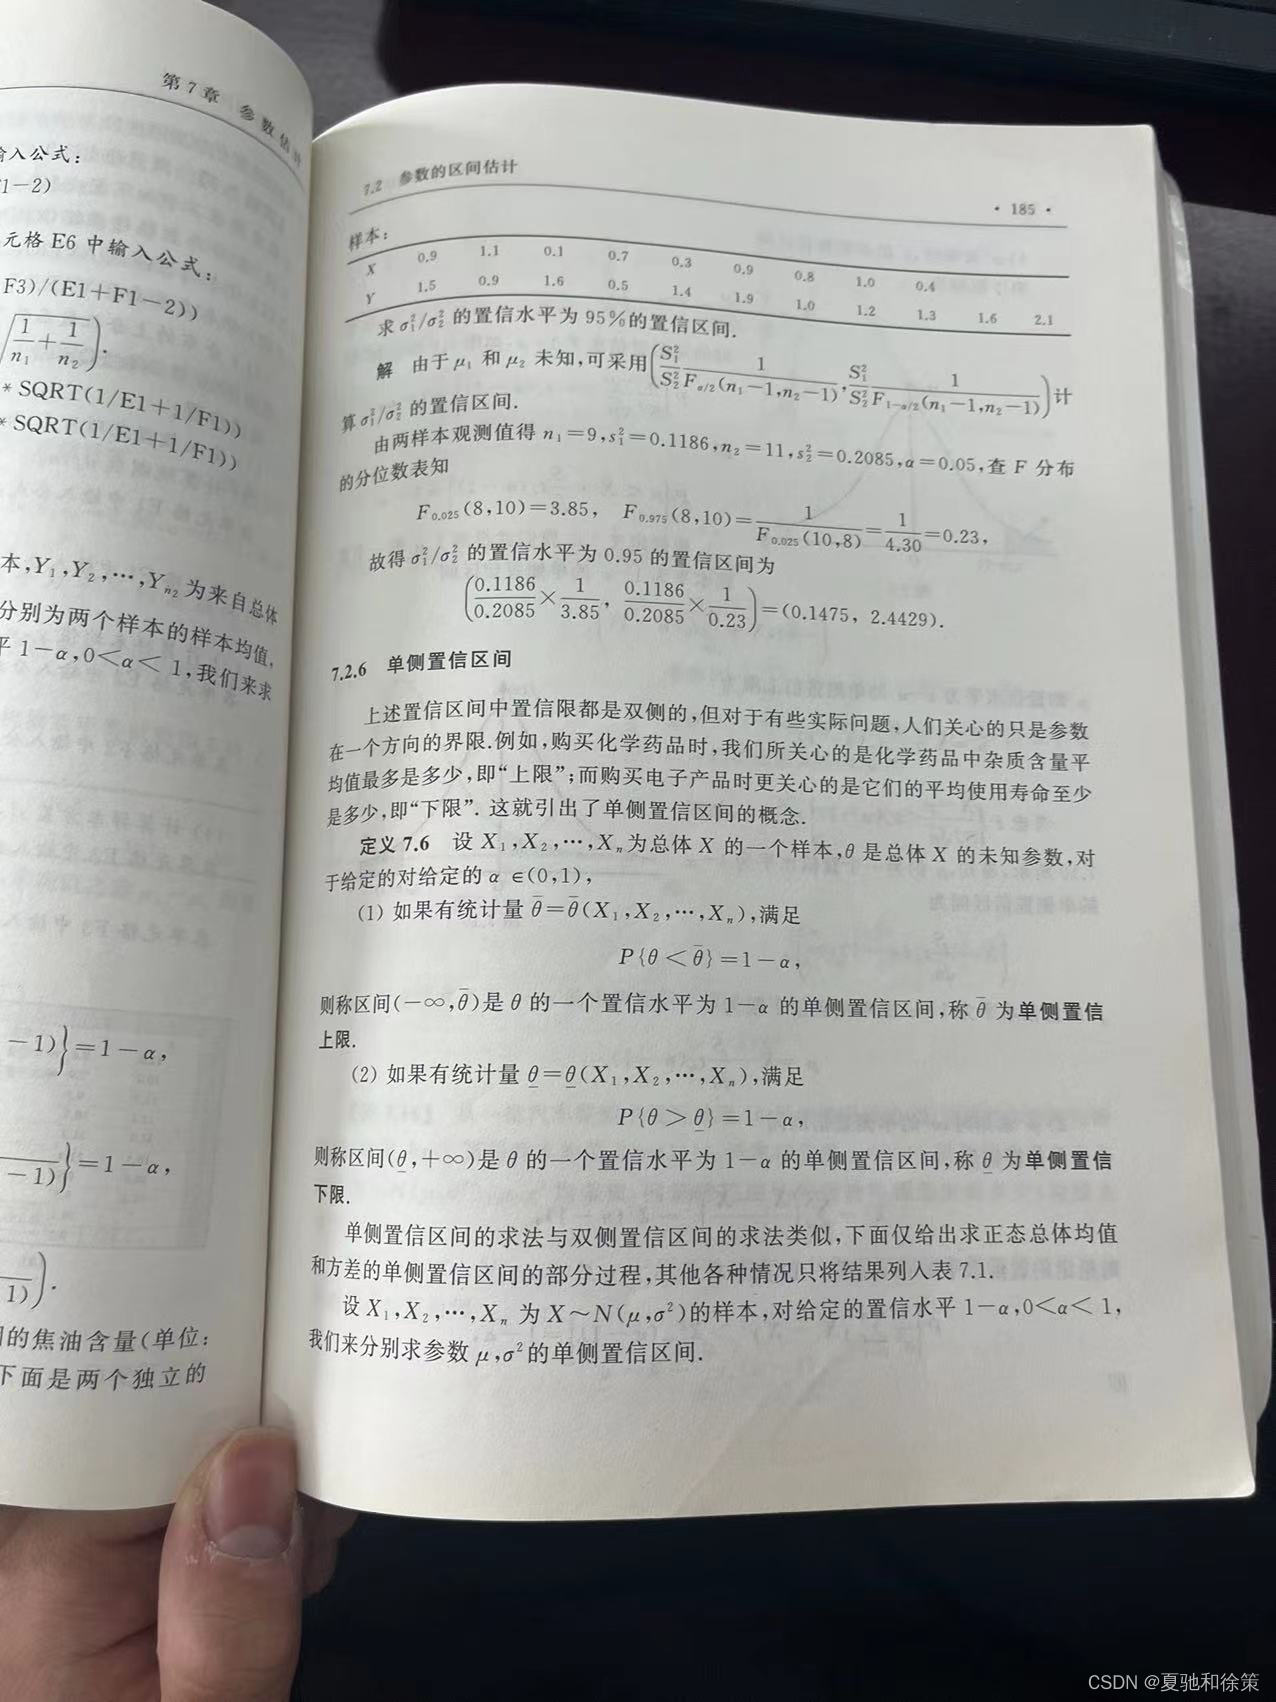 第7章 参数估计
输入公式:
1-2)
元格 E6 中输入公式:
F3)/(E1+F1-2))
√(1/n₁+1/n₂)).
* SQRT(1/E1+1/F1))
* SQRT(1/E1+1/F1))
本,Y₁,Y₂,…,Yₙ₂为来自总体
分别为两个样本的样本均值,
平 1-α,0<α<1,我们来求
-1)}=1-α,
-1)}=1-α,
1)).
的焦油含量(单位:
下面是两个独立的
7.2 参数的区间估计
· 185 ·
样本:
X 0.9 1.1 0.1 0.7 0.3 0.9 0.8 1.0 0.4
Y 1.5 0.9 1.6 0.5 1.4 1.9 1.0 1.2 1.3 1.6 2.1
求 σ₁²/σ₂² 的置信水平为 95%的置信区间.
解 由于 μ₁ 和 μ₂ 未知,可采用(S₁²/S₂² 1/F_{α/2}(n₁-1,n₂-1), S₁²/S₂² 1/F_{1-α/2}(n₁-1,n₂-1))计
算 σ₁²/σ₂² 的置信区间.
由两样本观测值得 n₁=9,s₁²=0.1186,n₂=11,s₂²=0.2085,α=0.05,查 F 分布
的分位数表知
F₀.₀₂₅(8,10)=3.85, F₀.₉₇₅(8,10)=1/F₀.₀₂₅(10,8)=1/4.30=0.23,
故得 σ₁²/σ₂² 的置信水平为 0.95 的置信区间为
(0.1186/0.2085×1/3.85, 0.1186/0.2085×1/0.23)=(0.1475, 2.4429).
7.2.6 单侧置信区间
上述置信区间中置信限都是双侧的,但对于有些实际问题,人们关心的只是参数
在一个方向的界限.例如,购买化学药品时,我们所关心的是化学药品中杂质含量平
均值最多是多少,即“上限”;而购买电子产品时更关心的是它们的平均使用寿命至少
是多少,即“下限”. 这就引出了单侧置信区间的概念.
定义 7.6 设 X₁,X₂,…,Xₙ为总体 X 的一个样本,θ 是总体 X 的未知参数,对
于给定的对给定的 α ∈(0,1),
(1) 如果有统计量 θ̄=θ̄(X₁,X₂,…,Xₙ),满足
P{θ<θ̄}=1-α,
则称区间(-∞,θ̄)是 θ 的一个置信水平为 1-α 的单侧置信区间,称 θ̄ 为单侧置信
上限.
(2) 如果有统计量 θ̲=θ̲(X₁,X₂,…,Xₙ),满足
P{θ>θ̲}=1-α,
则称区间(θ̲,+∞)是 θ 的一个置信水平为 1-α 的单侧置信区间,称 θ̲ 为单侧置信
下限.
单侧置信区间的求法与双侧置信区间的求法类似,下面仅给出求正态总体均值
和方差的单侧置信区间的部分过程,其他各种情况只将结果列入表 7.1.
设 X₁,X₂,…,Xₙ 为 X~N(μ,σ²)的样本,对给定的置信水平 1-α,0<α<1,
我们来分别求参数 μ,σ²的单侧置信区间.
CSDN @夏驰和徐策